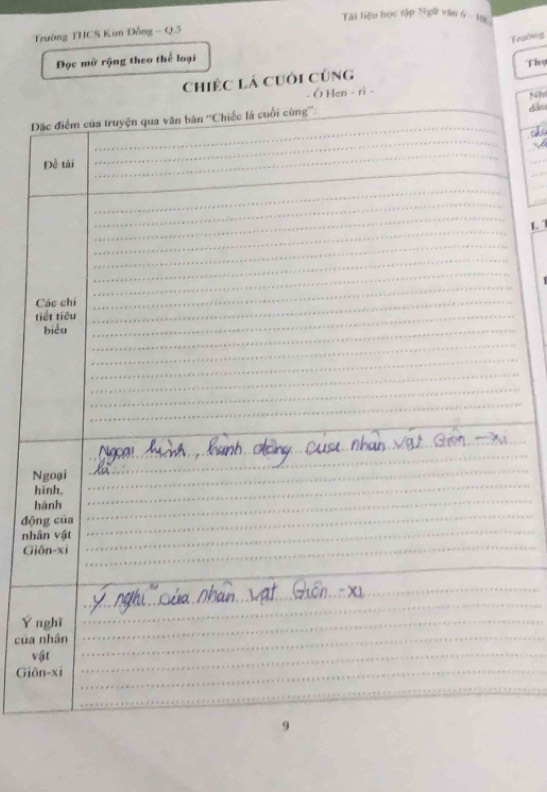 Trường THCS Kim Đồng - Q.5
Tài liệu học tập Ngữ văn 6
Đọc mở rộng theo thể loại
CHIẾC LÁ CUỐI CÙNG
- Ô Hen - ri -
Đặc điểm của truyện qua văn bản "Chiếc lá cuối cùng":
Đề tài
Các chi
tiết tiêu
biểu
Ngoại
hình,
hành
động của
nhân vật
Giôn-xi
Ngoại hình, hành động của nhân vật Giôn - xi
là :
Ý nghĩ
của nhân
vật
Giôn-xi
Ý nghĩ của nhân vật Giôn - xi
9
Trường